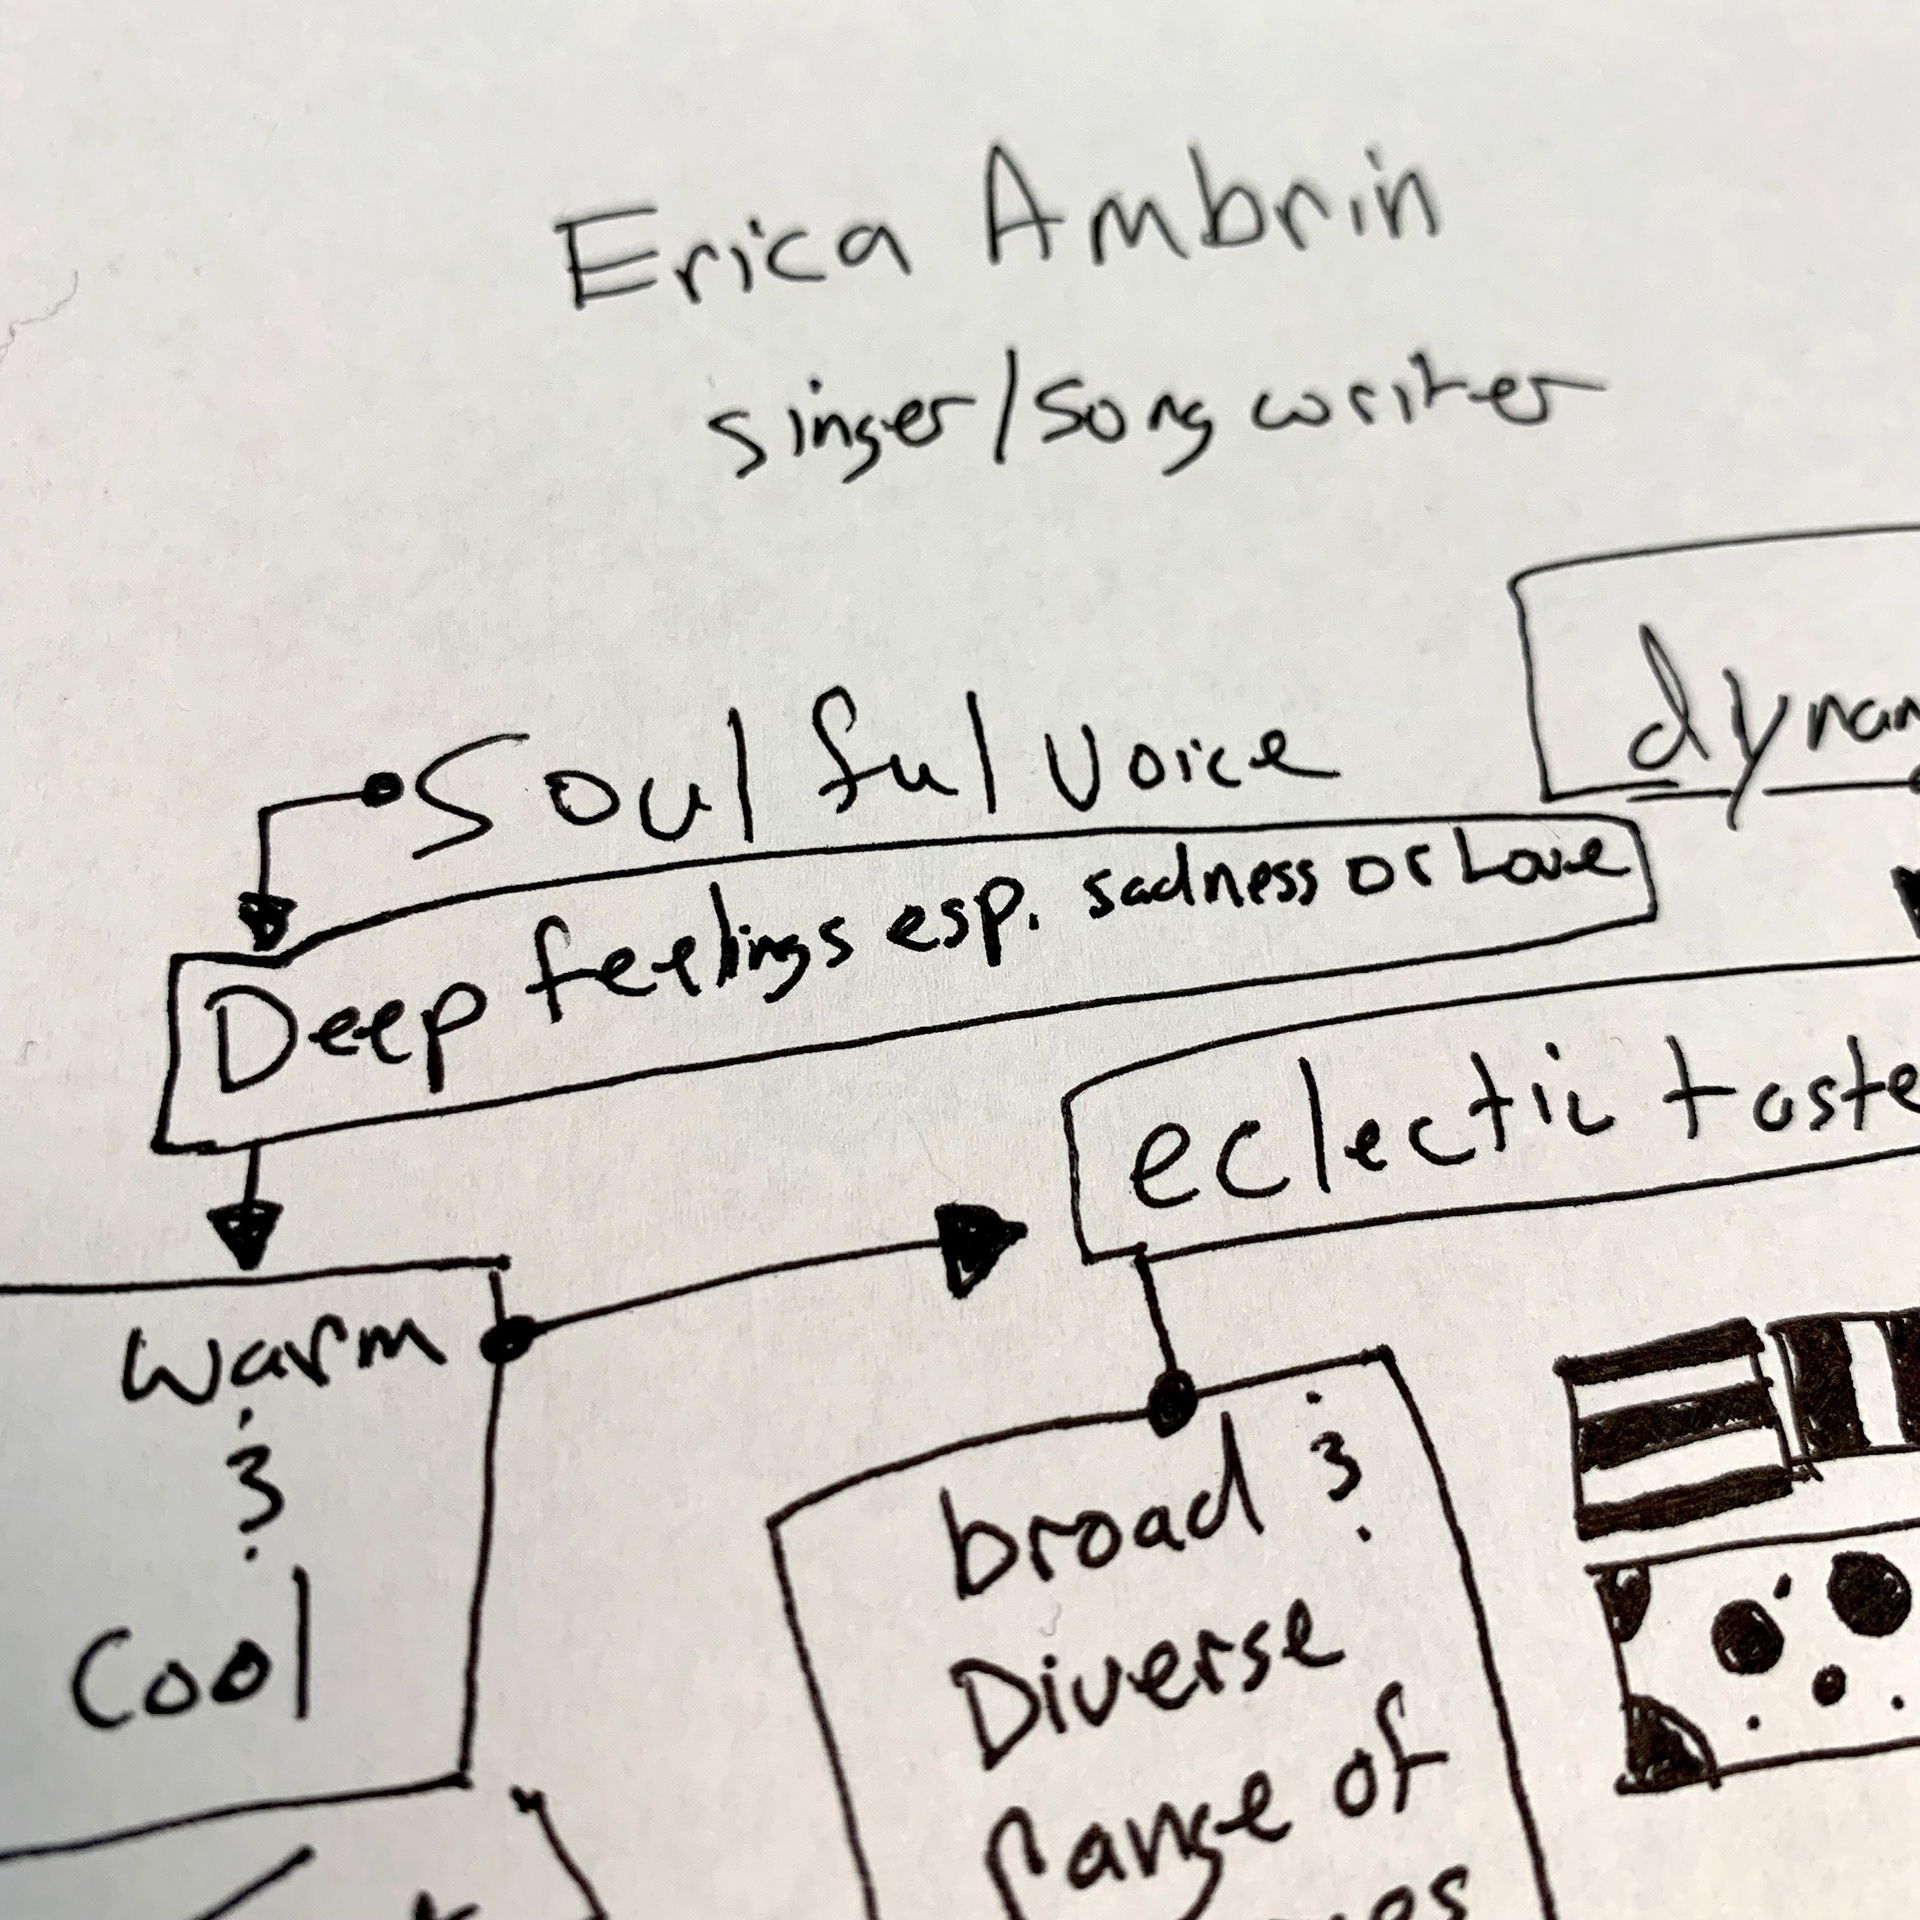 Erica Ambrin
singer/songwriter
Soulful Voice
Deep feelings esp. sadness or Love
eclectic taste
warm
&
Cool
broad &
Diverse
range of